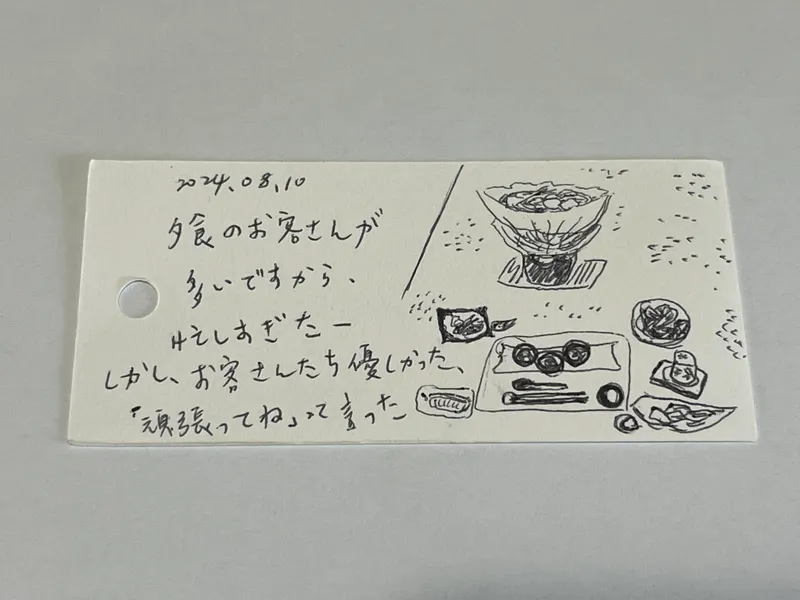 2024.08.10
夕食のお客さんが
多いですから、
忙しすぎたー
しかし、お客さんたち優しかった、
「頑張ってね」って言った